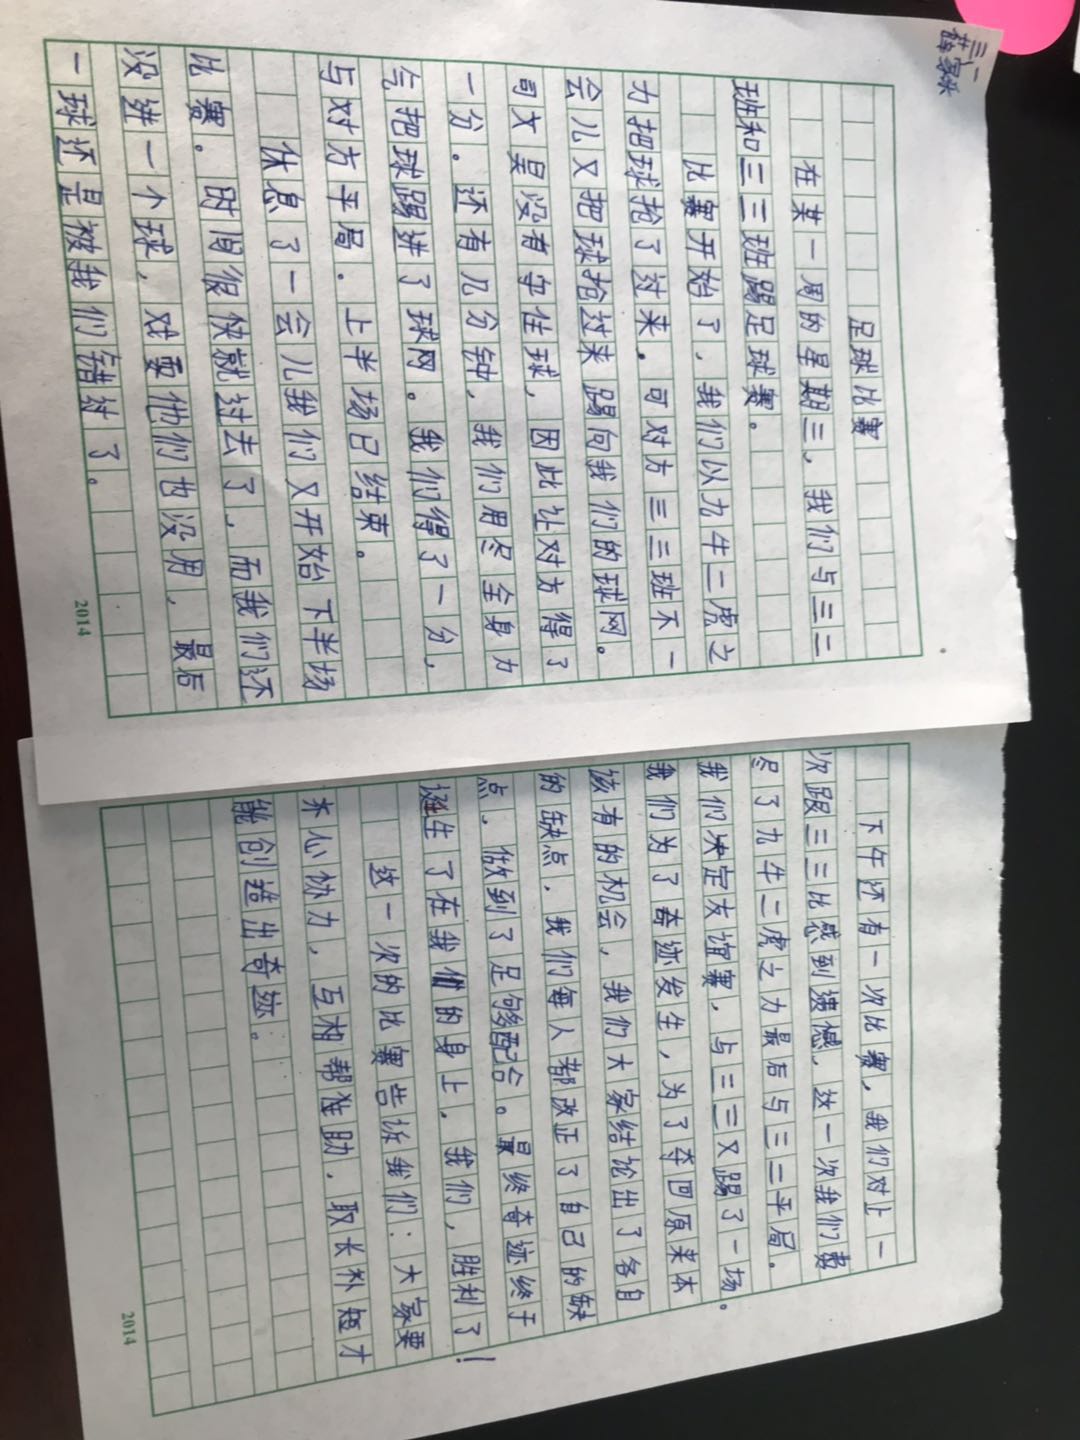 三二
足球比赛
在某一周的星期三，我们与三二
班和三三班踢足球赛。
比赛开始了，我们以九牛二虎之
力把球抢了过来。可对方三三班不一
会儿又把球抢过来踢向我们的球网。
司文昊没有守住球，因此让对方得了
一分。还有几分钟，我们用尽全身力
气把球踢进了球网。我们得了一分，
与对方平局。上半场已结束。
休息了一会儿我们又开始下半场
比赛。时间很快就过去了，而我们还
没进一个球，对要他们也没用，最后
一球还是被我们错过了。
2014
下午还有一次比赛，我们对上一
次跟三三比感到遗憾，这一次我们费
尽了九牛二虎之力最后与三二平局。
我们决定友谊赛，与三三又踢了一场。
我们为了奇迹发生，为了夺回原来本
该有的机会，我们大家结论出了各自
的缺点，我们每人都改正了自己的缺
点，做到了足够配合。最终奇迹终于
诞生了在我们的身上，我们，胜利了！
这一次的比赛告诉我们：大家要
齐心协力，互相帮助，取长补短才
能创造出奇迹。
2014